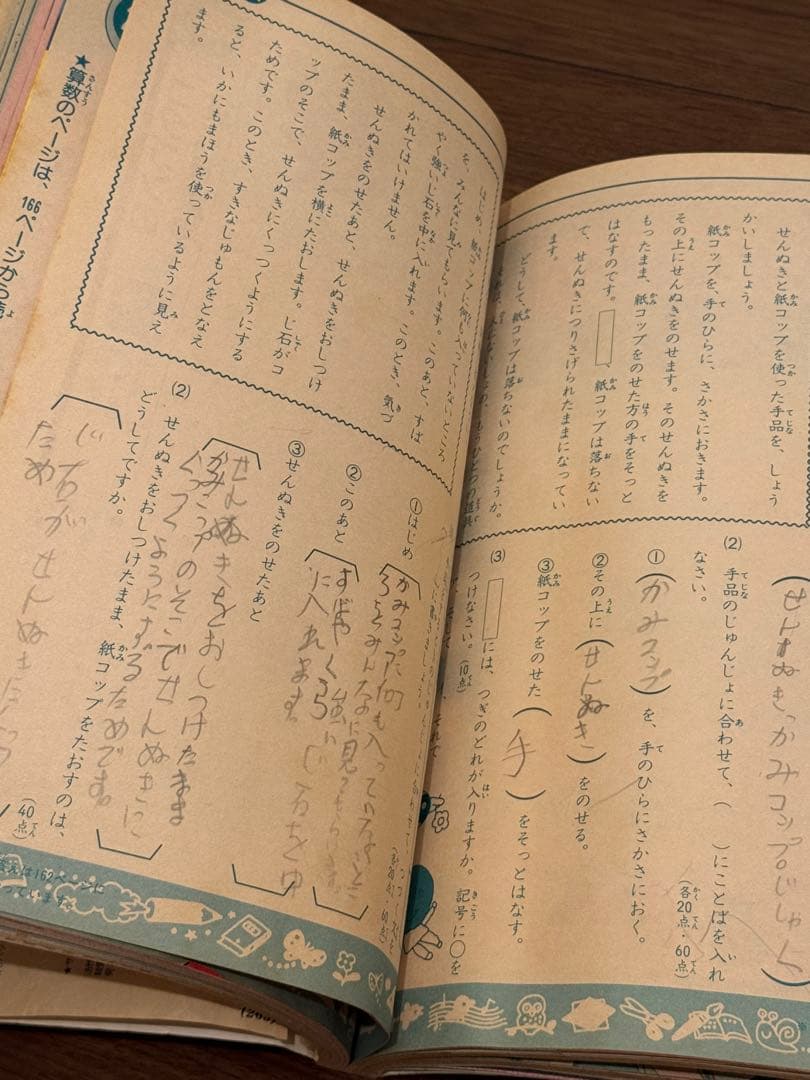 せんぬきと紙コップを使った手品を、しょう
かいしましょう。
紙コップを、手のひらに、さかさにおきます。
その上にせんぬきをのせます。そのせんぬきを
もったまま、紙コップをのせた方の手をそっと
はなすのです。
、紙コップは落ちない
で、せんぬきにつりさげられたままになってい
どうして、紙コップは落ちないのでしょうか。
せんぬき
(2) 手品のじゅんじょに合わせて、( )にことばを入れ
なさい。
(各20点・60点)
① (かみコップ)を、手のひらにさかさにおく。
② その上に(せんぬき)をのせる。
③ 紙コップをのせた(手)をそっとはなす。
(3) には、つぎのどれが入りますか。記号に○を
つけなさい。(10点)
はじめ、紙コップに何も入っていないところ
を、みんなに見てもらいます。このあと、すば
やく強いじ石を中に入れます。このとき、気づ
かれてはいけません。
せんぬきをのせたあと、せんぬきをおしつけ
たまま、紙コップを横にたおします。じ石がコ
ップのそこで、せんぬきにくっつくようにする
ためです。このとき、すきなじゅもんをとなえ
ると、いかにもまほうを使っているように見え
ます。
(各20点・60点)
①はじめ
かみコップに何も入っていないとこ
ろをみんなに見て
②このあと
すばやく強いじ石を中
に入れます。
③せんぬきをのせたあと
せんぬきをおしつけたまま
のそこでせんぬきに
くっつくようにするためです。
(2) せんぬきをおしつけたまま、紙コップをたおすのは、
どうしてですか。
(40点)
じ石がせんぬきに
ため
★算数のページは、166ページから
162ページに
っています。